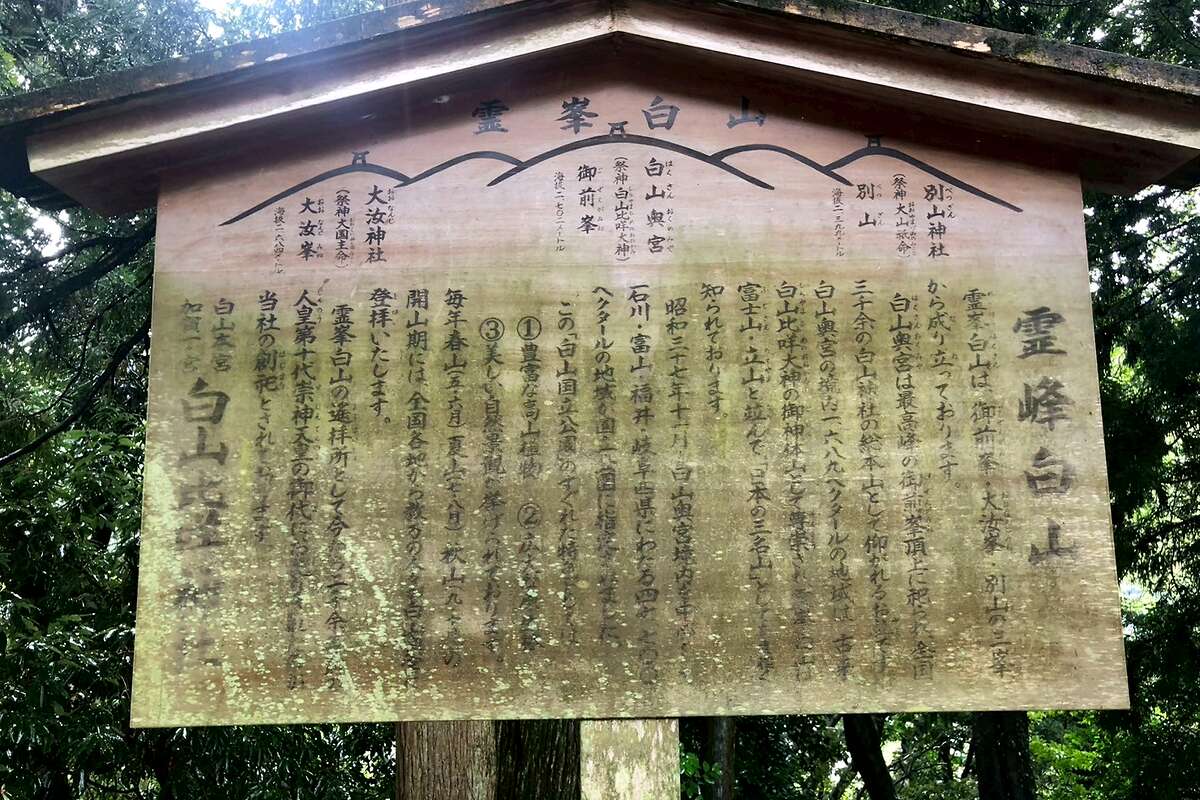 霊峯白山
別山神社
べつざん
(祭神 大山祇命)
別山
べつ ざん
白山奥宮
はく さん おくのみや
(祭神 白山比咩大神)
御前峯
海抜二、七〇二メートル
大汝神社
おおなむち
(祭神 大国主命)
大汝峯
海抜二、六八四メートル
霊峰白山
霊峯白山は、御前峯・大汝峯・別山の三峯
から成り立っております。
白山奥宮は最高峰の御前峯頂上に祀られ全国
三千余の白山神社の総本山として仰がれ
白山奥宮の境内二、六八九ヘクタールの地域は、古来
白山比咩大神の御神体山として尊崇され
富士山・立山と並んで「日本の三名山」として
知られております。
昭和三十七年十一月、白山奥宮境内を中心に
石川・富山・福井・岐阜四県にわたる四万七千
ヘクタールの地域が国立公園に指定されました。
この「白山国立公園」のすぐれた特色
①豊富な高山植物 ②
③美しい自然景観が挙げられております。
毎年春山(五・六月)夏山(七・八月)秋山(九・十月)の
開山期には、全国各地から数多の人々が白山
登拝いたします。
霊峯白山の遥拝所として今から二千余年
人皇第十代崇神天皇の御代に
当社の創祀とされております。
白山本宮
加賀一ノ宮
白山比咩神社